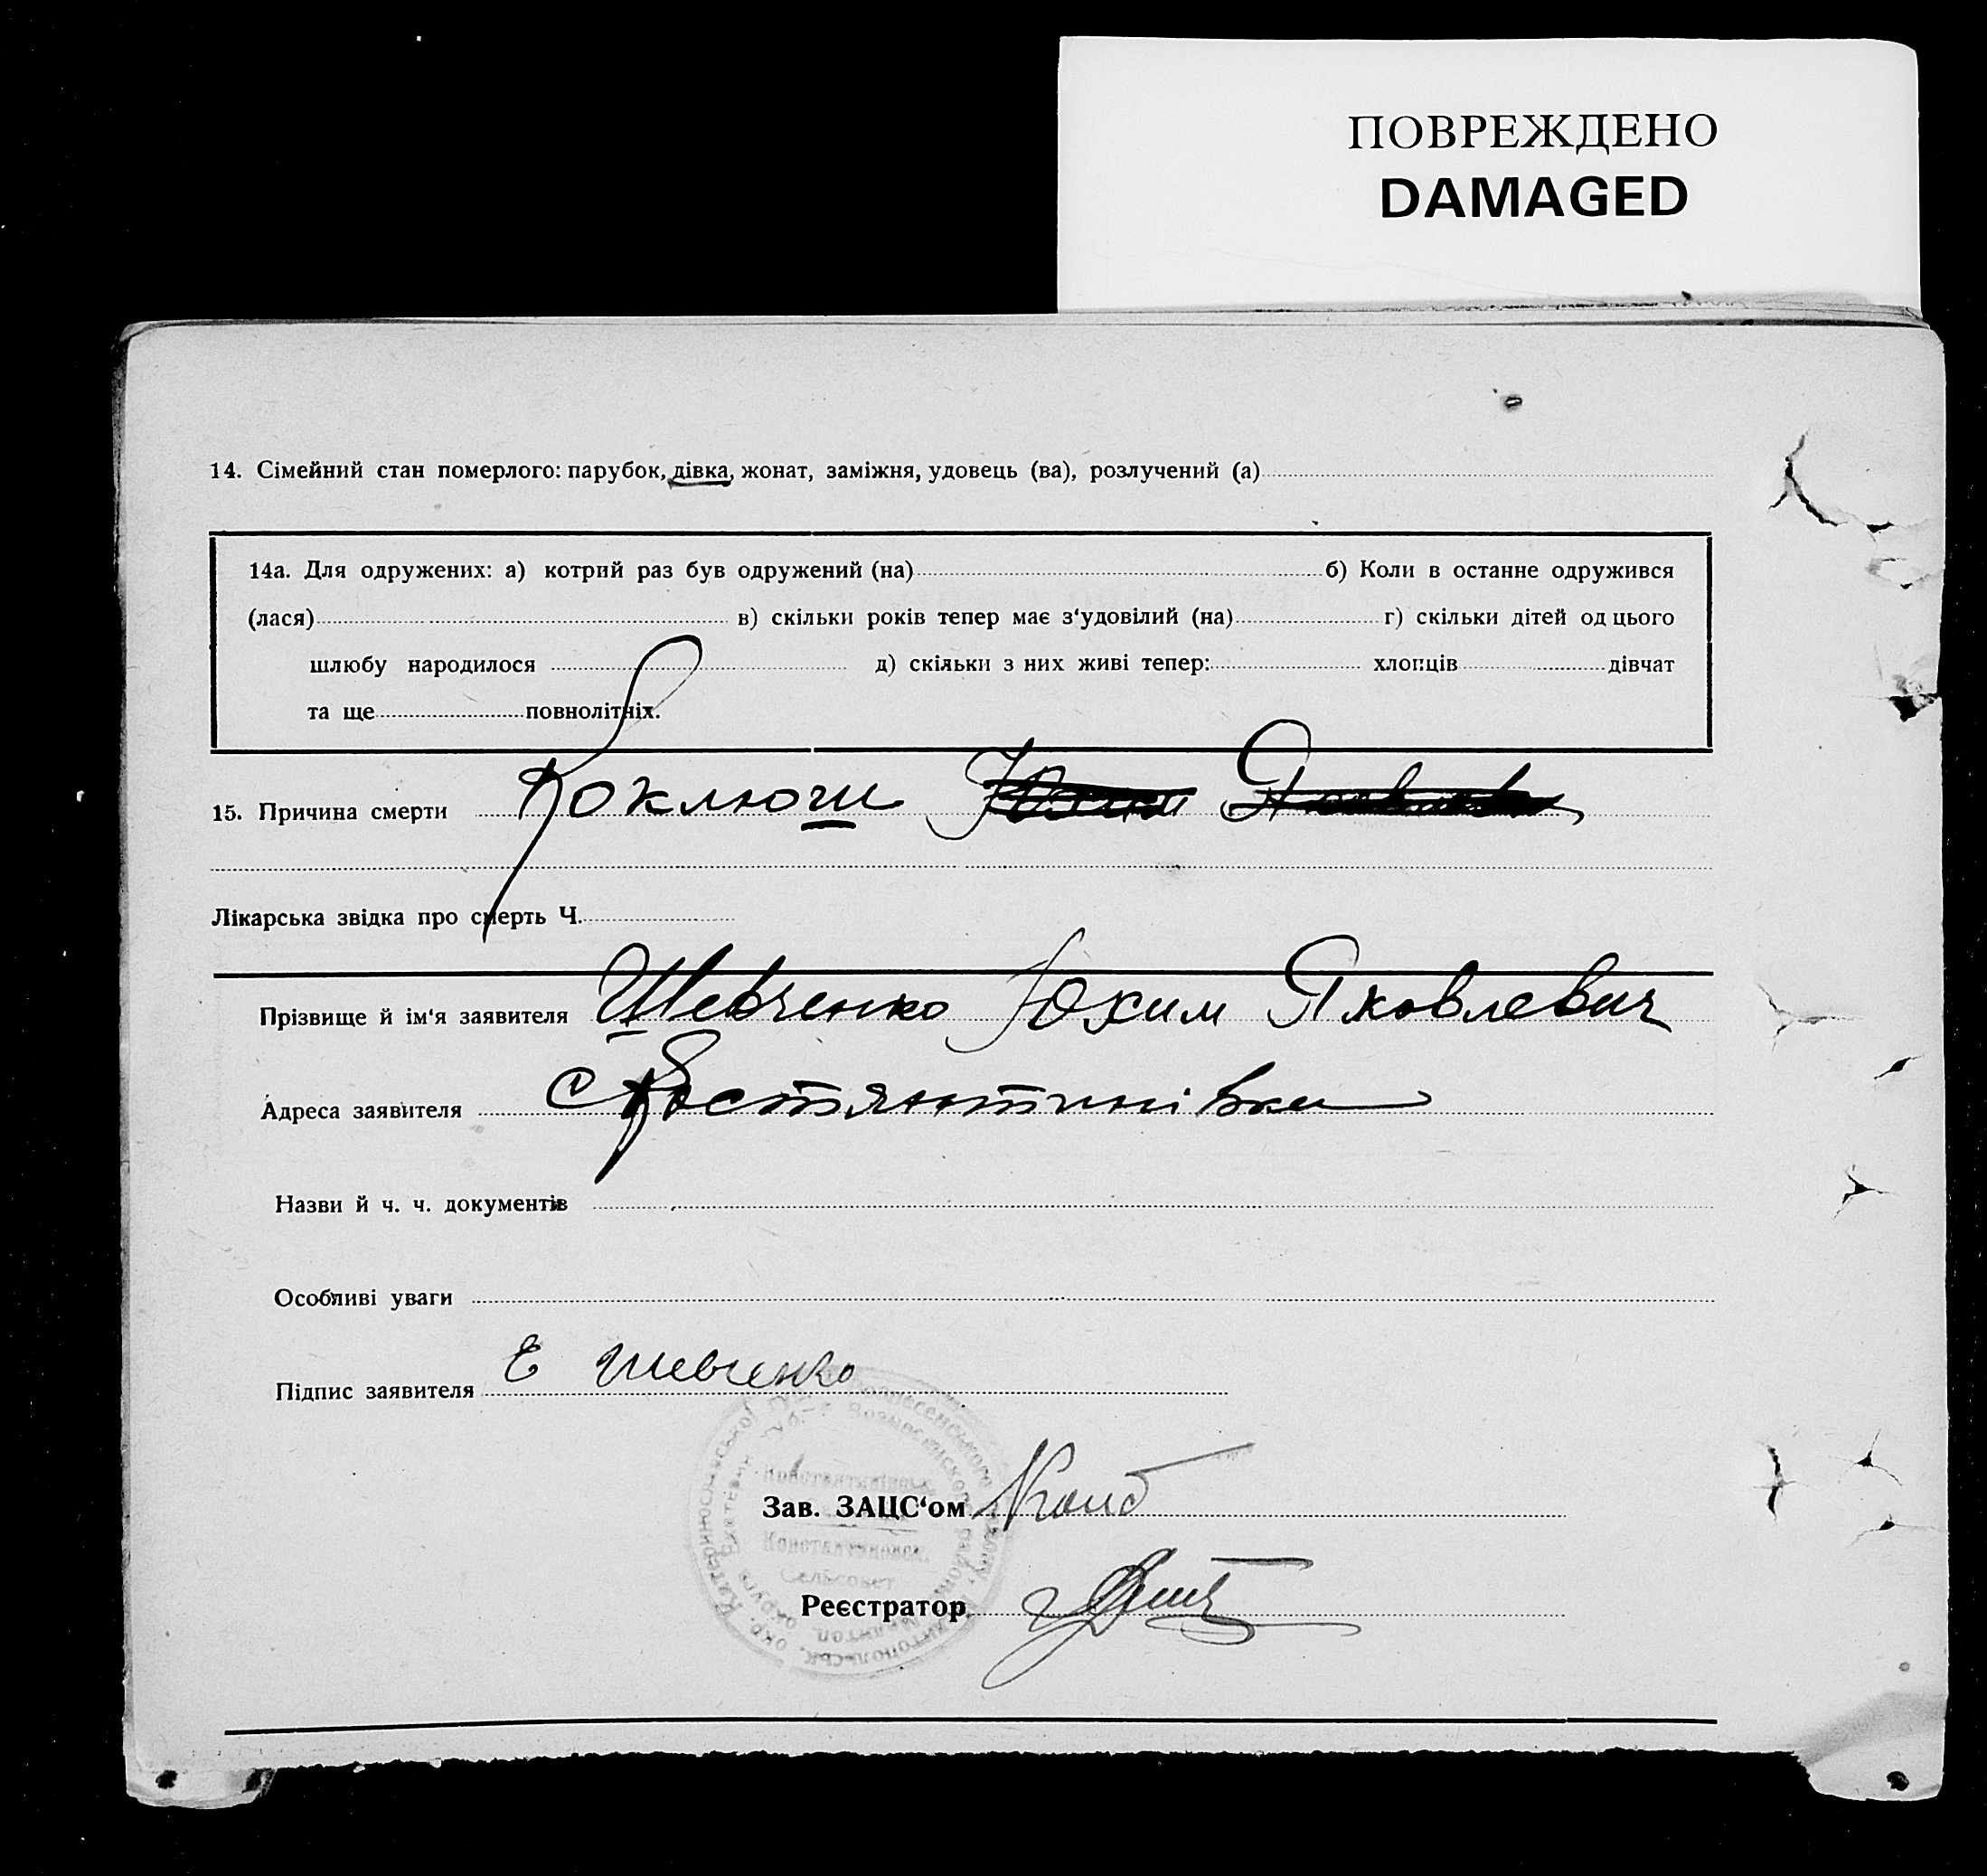 ПОВРЕЖДЕНО
DAMAGED
14. Сімейний стан померлого: парубок, дівка, жонат, заміжня, удовець (ва), розлучений (а)
14а. Для одружених: а) котрий раз був одружений (на) б) Коли в останне одружився
(лася) в) скільки років тепер має з‘удовілий (на) г) скільки дітей од цього
шлюбу народилося д) скільки з них живі тепер: хлопців дівчат
та ще повнолітніх.
15. Причина смерти Коклюш
Лікарська звідка про смерть Ч.
Прізвище й ім‘я заявителя Шевченко Юхим Яковлевич
Адреса заявителя с Костянтинівка
Назви й ч. ч. документів
Особливі уваги
Підпис заявителя Е Шевченко
Зав. ЗАЦС‘ом
Реєстратор
Константиновск.
Сельсовет